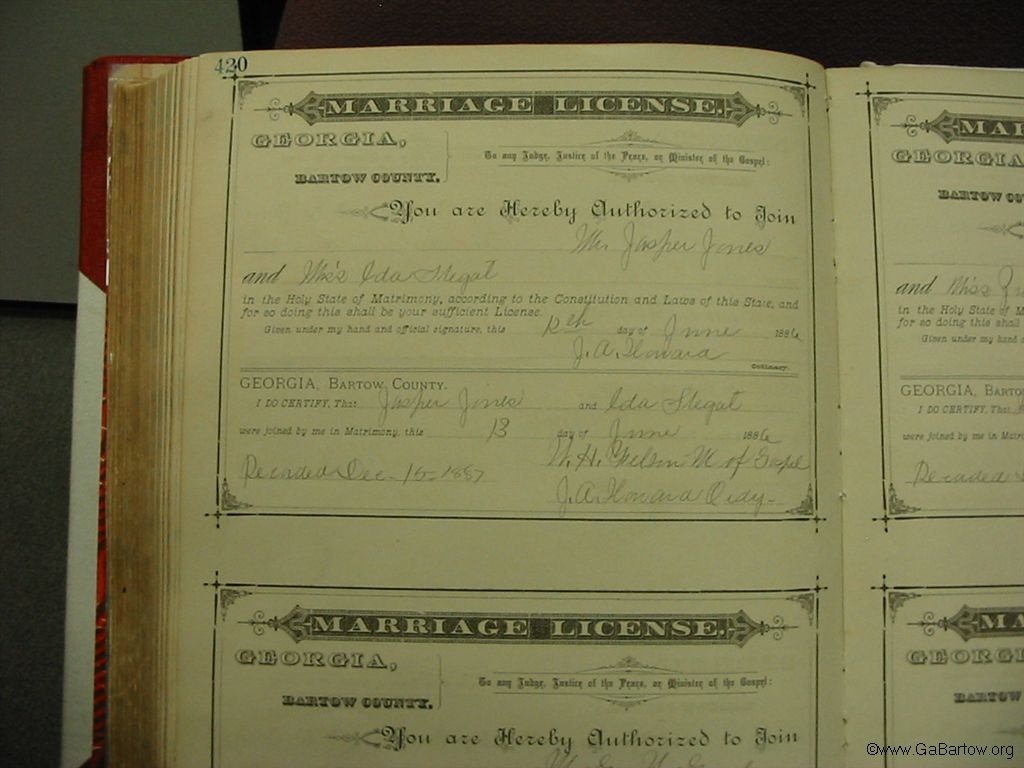 420
MARRIAGE LICENSE.
GEORGIA,
BARTOW COUNTY.
To any Judge, Justice of the Peace, or Minister of the Gospel:
You are Hereby Authorized to Join
Mr. Jasper Jones
and Miss Ida Stegat
in the Holy State of Matrimony, according to the Constitution and Laws of this State, and
for so doing this shall be your sufficient License.
Given under my hand and official signature, this 12th day of June 1886
J. A. Howard
Ordinary.
GEORGIA, BARTOW COUNTY.
I DO CERTIFY, That Jasper Jones and Ida Stegat
were joined by me in Matrimony, this 13 day of June 1886
W. H. M of Gospel
Recorded Dec 15 1887
J. A. Howard Ordy-
MARRIAGE LICENSE.
GEORGIA,
BARTOW COUNTY.
To any Judge, Justice of the Peace, or Minister of the Gospel:
You are Hereby Authorized to Join
MAR
GEORGIA
BARTOW COU
and Miss
in the Holy State of M
for so doing this shall
Given under my hand a
GEORGIA, BARTO
I DO CERTIFY, That
were joined by me in Matri
Recorded
MA
GEORGIA
BARTOW
©www.GaBartow.org